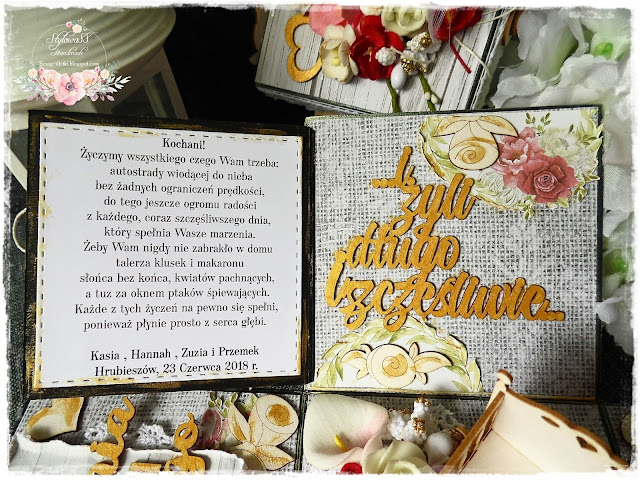 Stylowa88
Handmade
Kochani!
Życzymy wszystkiego czego Wam trzeba:
autostrady wiodącej do nieba
bez żadnych ograniczeń prędkości,
do tego jeszcze ogromu radości
z każdego, coraz szczęśliwszego dnia,
który spełnia Wasze marzenia.
Żeby Wam nigdy nie zabrakło w domu
talerza klusek i makaronu
słońca bez końca, kwiatów pachnących,
a tuz za oknem ptaków śpiewających.
Każde z tych życzeń na pewno się spełni,
ponieważ płynie prosto z serca głębi.
Kasia , Hannah , Zuzia i Przemek
Hrubieszów, 23 Czerwca 2018 r.
...I
żyli
długo
I szczęśliwie...